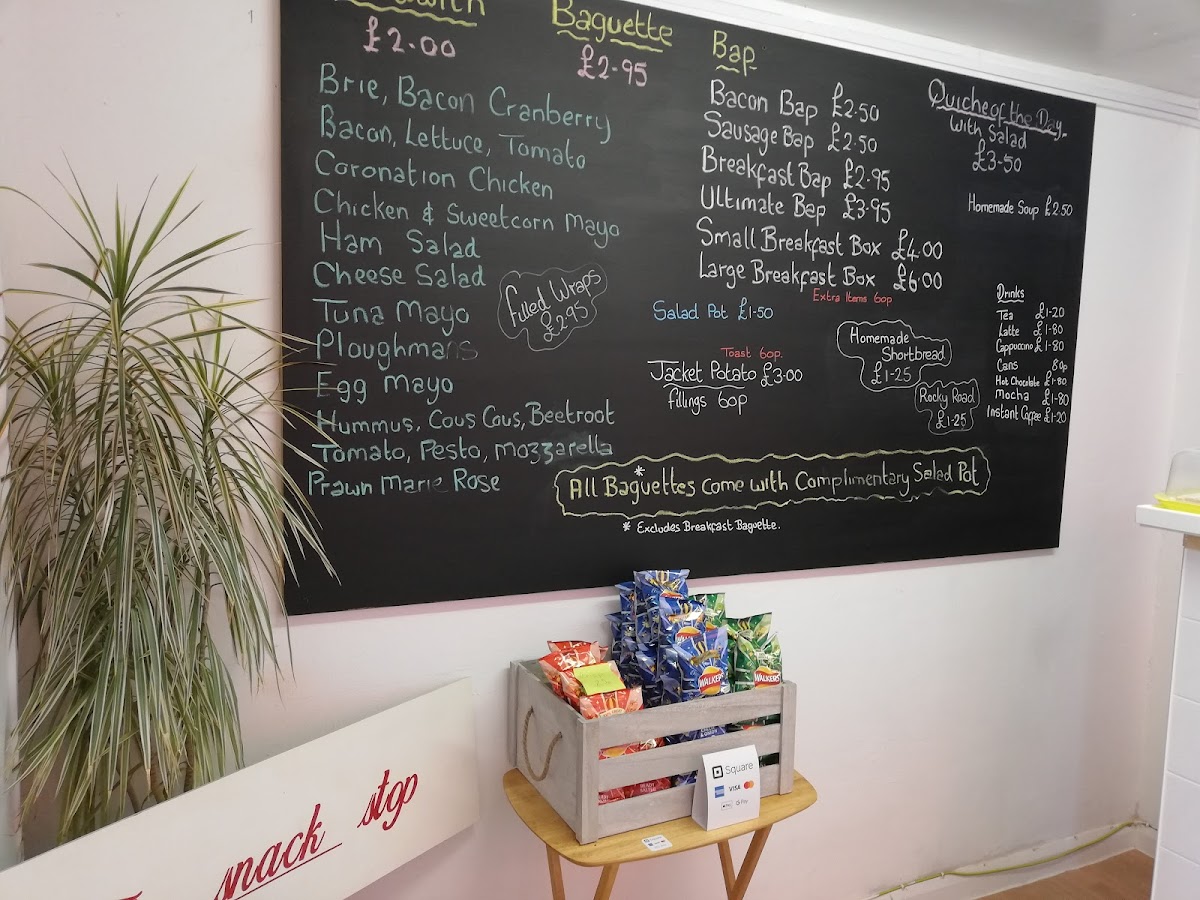 £2.00
Brie, Bacon Cranberry
Bacon, Lettuce, Tomato
Coronation Chicken
Chicken & Sweetcorn Mayo
Ham Salad
Cheese Salad
Tuna Mayo
Ploughmans
Egg Mayo
Hummus, Cous Cous, Beetroot
Tomato, Pesto, Mozzarella
Prawn Marie Rose
Baguette
£2-95
Filled Wraps
£2.95
Bap
Bacon Bap £2.50
Sausage Bap £2.50
Breakfast Bap £2-95
Ultimate Bap £3-95
Small Breakfast Box £4.00
Large Breakfast Box £6.00
Extra Items 60p
Salad Pot £1-50
Toast 60p.
Jacket Potato £3-00
fillings 60p
Homemade
Shortbread
£1-25
Rocky Road
£1-25
Quiche of the Day
With Salad
£3-50
Homemade Soup £2.50
Drinks
Tea £1-20
Latte £1-80
Cappuccino £1-80
Cans 80p
Hot Chocolate £1-80
Mocha £1-80
Instant Coffee £1-20
*
All Baguettes Come with Complimentary Salad Pot
* Excludes Breakfast Baguette.
WALKERS
WALKERS
Square
VISA
G Pay
snack stop